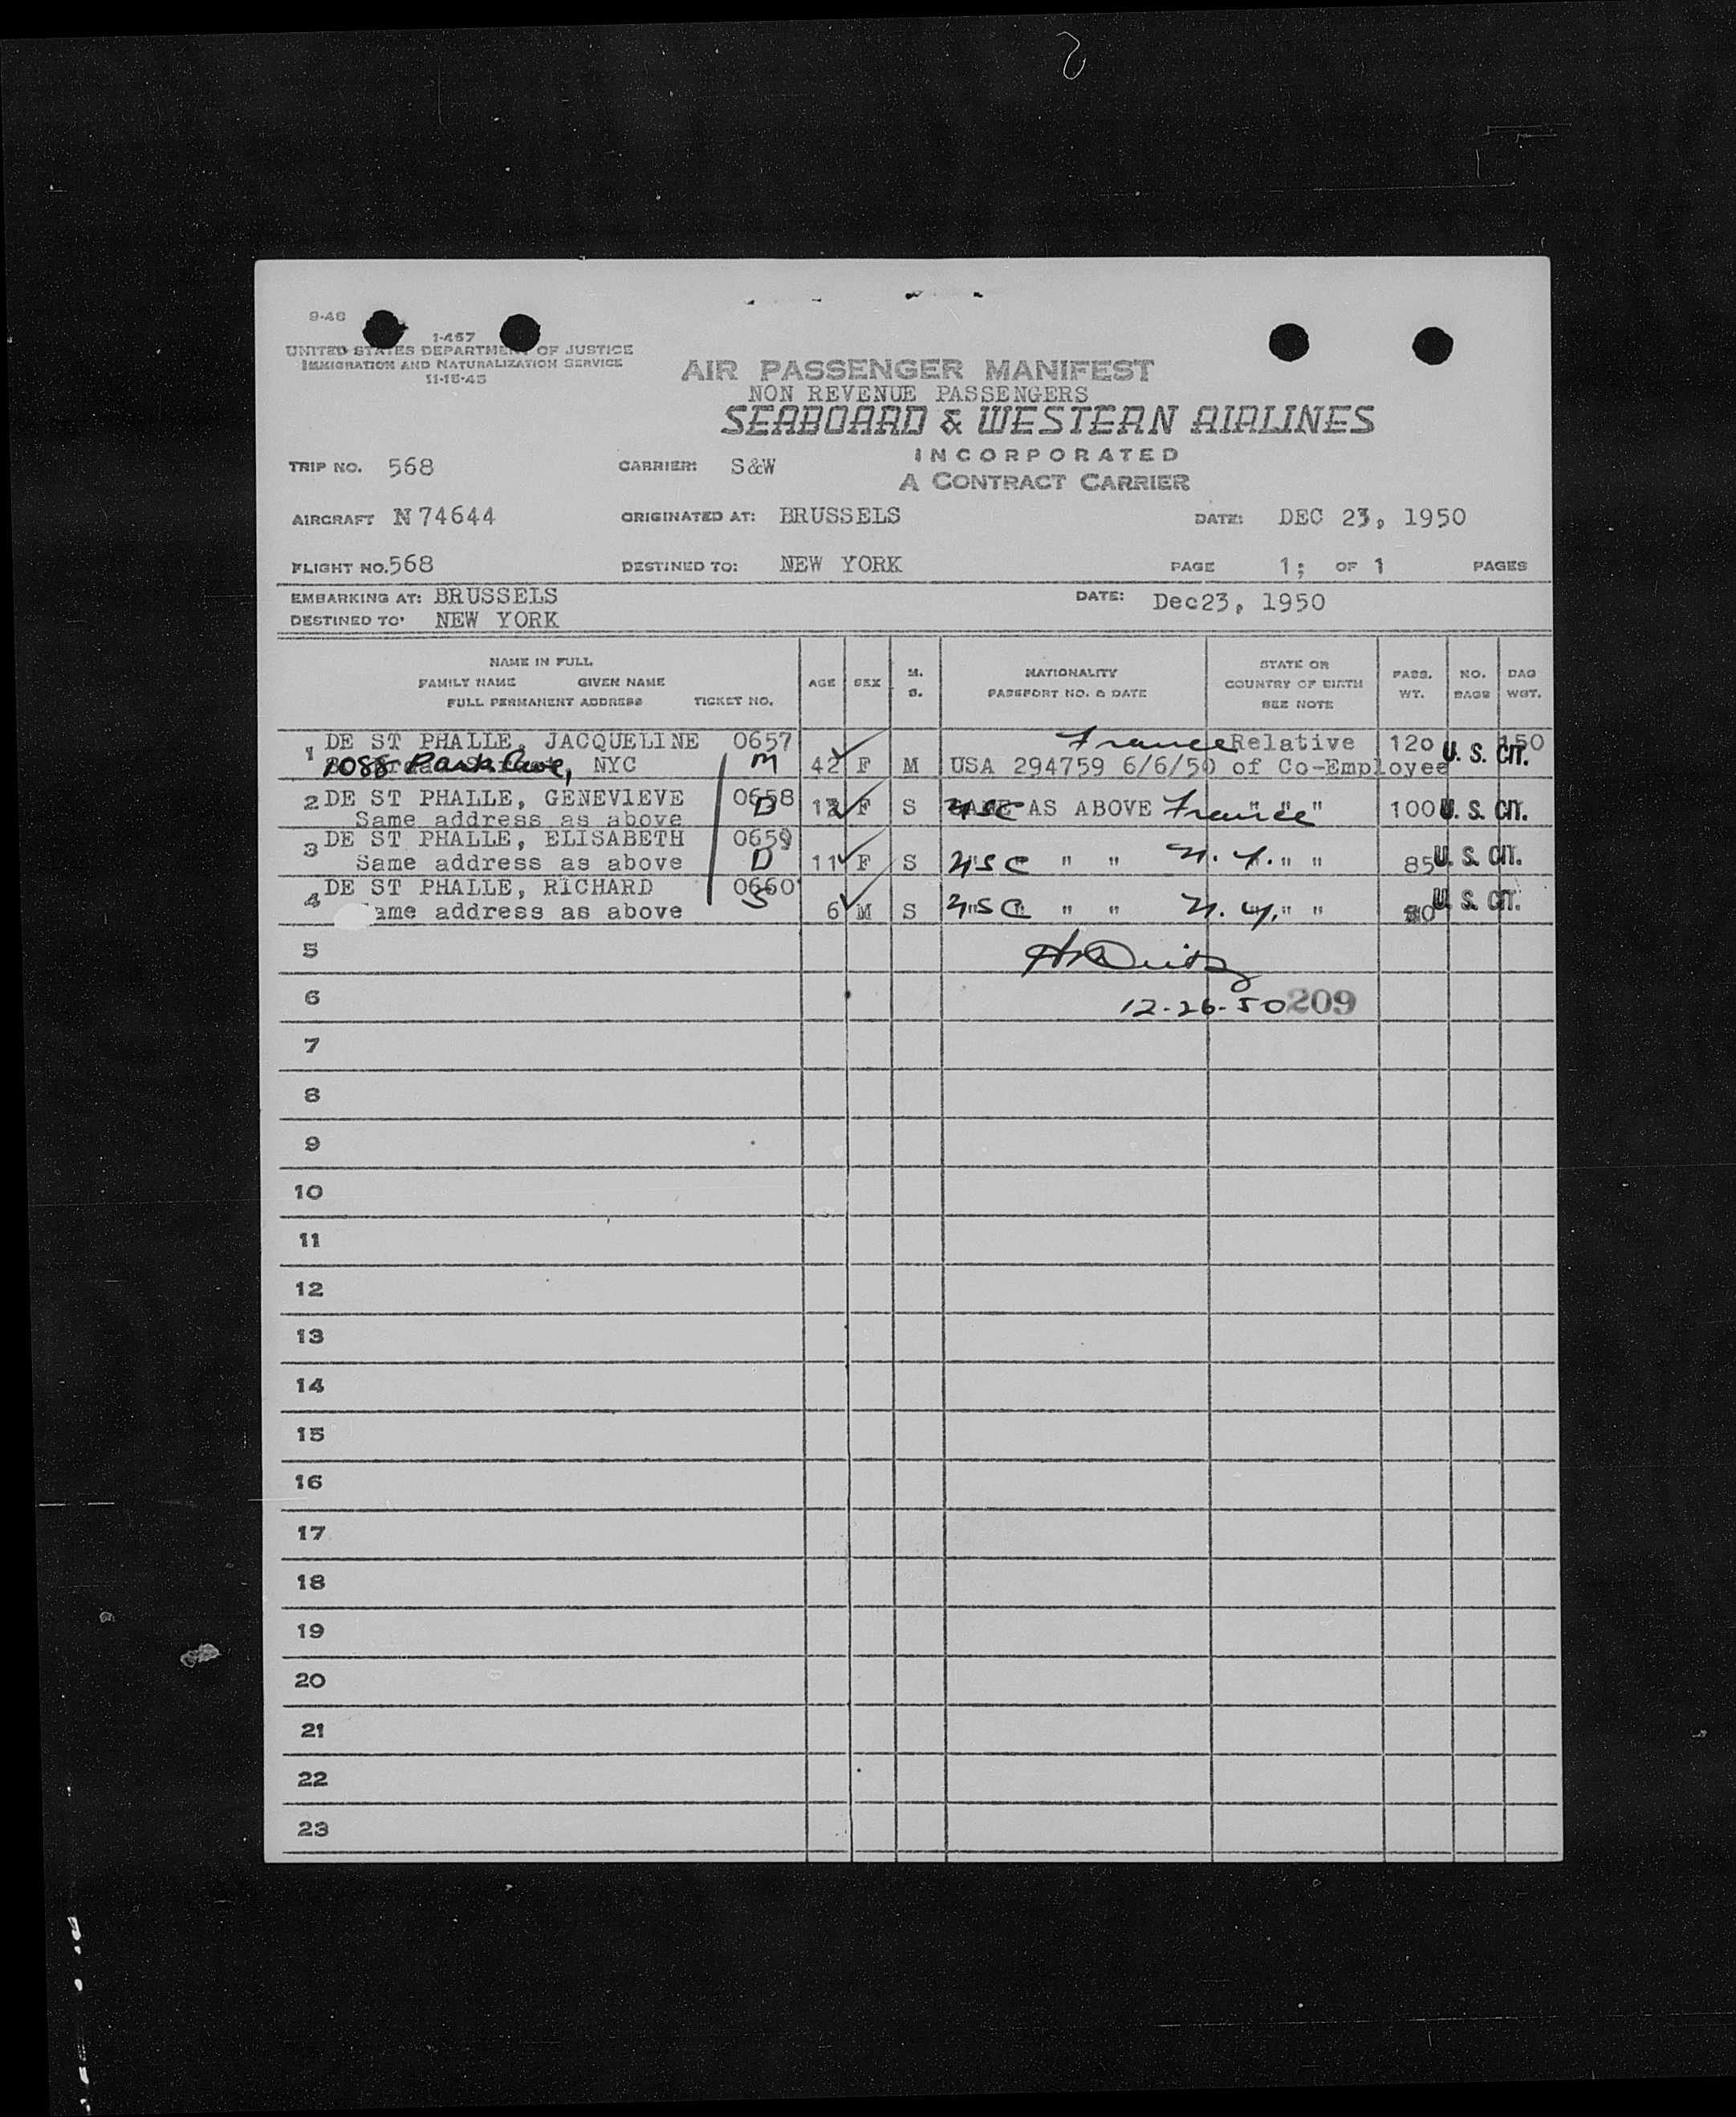 9-46
1-467
UNITED STATES DEPARTMENT OF JUSTICE
IMMIGRATION AND NATURALIZATION SERVICE
11-15-45
AIR PASSENGER MANIFEST
NON REVENUE PASSENGERS
SEABOARD & WESTERN AIRLINES
INCORPORATED
A CONTRACT CARRIER
TRIP NO. 568 CARRIER: S&W
AIRCRAFT N 74644 ORIGINATED AT: BRUSSELS DATE: DEC 23, 1950
FLIGHT NO. 568 DESTINED TO: NEW YORK PAGE 1; OF 1 PAGES
EMBARKING AT: BRUSSELS DATE: Dec23, 1950
DESTINED TO' NEW YORK
NAME IN FULL
FAMILY NAME GIVEN NAME
FULL PERMANENT ADDRESS TICKET NO.
AGE
SEX
M.
S.
NATIONALITY
PASSPORT NO. & DATE
STATE OR
COUNTRY OF BIRTH
SEE NOTE
PASS.
WT.
NO.
BAGS
BAG
WGT.
1 DE ST PHALLE, JACQUELINE 0657 France Relative 120 150
1088 Park Ave, NYC M 42 F M USA 294759 6/6/50 of Co-Employee U. S. CIT.
2 DE ST PHALLE, GENEVIEVE 0658 D F S USC AS ABOVE France " " " 100 U. S. CIT.
Same address as above
3 DE ST PHALLE, ELISABETH 0659
Same address as above D 11 F S USC " " N. Y. " " 85 U. S. CIT.
4 DE ST PHALLE, RICHARD 0660
ame address as above S 6 M S USC " " N. Y. " " U. S. CIT.
5
6 12-26-50 209
7
8
9
10
11
12
13
14
15
16
17
18
19
20
21
22
23